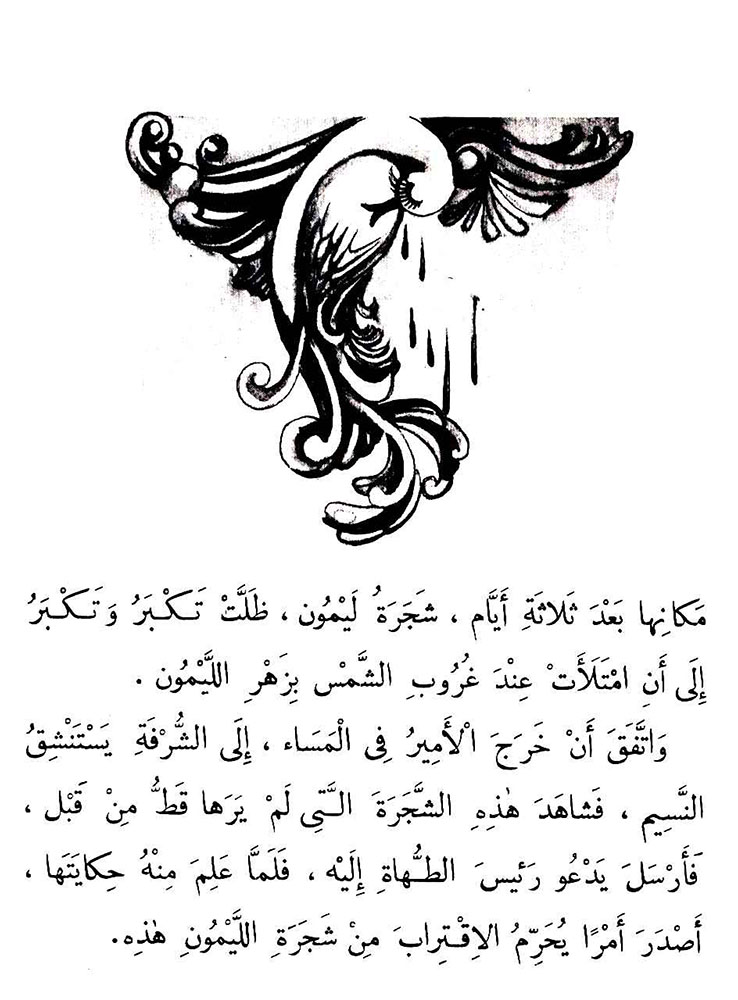 مَكانِها بَعْدَ ثَلاثَةِ أَيَّام ، شَجَرَةُ لَيْمُون ، ظَلَّتْ تَكْبَرُ وَتَكْبَرُ
إِلَى أَنِ امْتَلَأَتْ عِنْدَ غُرُوبِ الشَّمْسِ بِزَهْرِ اللَّيْمُون .
وَاتَّفَقَ أَنْ خَرَجَ الْأَمِيرُ فِى الْمَسَاء ، إِلَى الشُّرْفَةِ يَسْتَنْشِقُ
النَّسِيم ، فَشاهَدَ هٰذِهِ الشَّجَرَةَ الَّتِى لَمْ يَرَها قَطُّ مِنْ قَبْل ،
فَأَرْسَلَ يَدْعُو رَئِيسَ الطُّهاةِ إِلَيْه ، فَلَمَّا عَلِمَ مِنْهُ حِكايَتَها ،
أَصْدَرَ أَمْرًا يُحَرِّمُ الاِقْتِرابَ مِنْ شَجَرَةِ اللَّيْمُونِ هٰذِه.